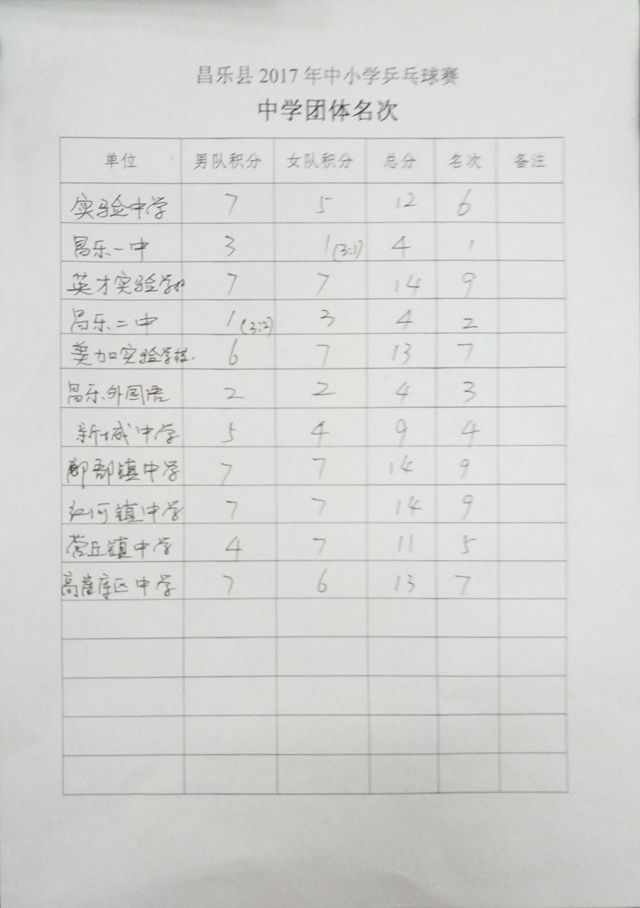 昌乐县2017年中小学乒乓球赛
中学团体名次
单位 男队积分 女队积分 总分 名次 备注
实验中学 7 5 12 6
昌乐一中 3 1(3:1) 4 1
英才实验学校 7 7 14 9
昌乐二中 1(3:2) 3 4 2
美加实验学校. 6 7 13 7
昌乐外国语 2 2 4 3
新城中学 5 4 9 4
鄌郚镇中学 7 7 14 9
红河镇中学 7 7 14 9
营丘镇中学 4 7 11 5
高崖库区中学 7 6 13 7